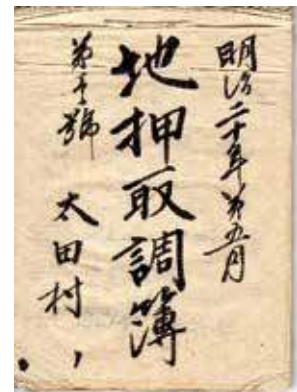 明治二十年第五月
地押取調簿
第壬號
太田村